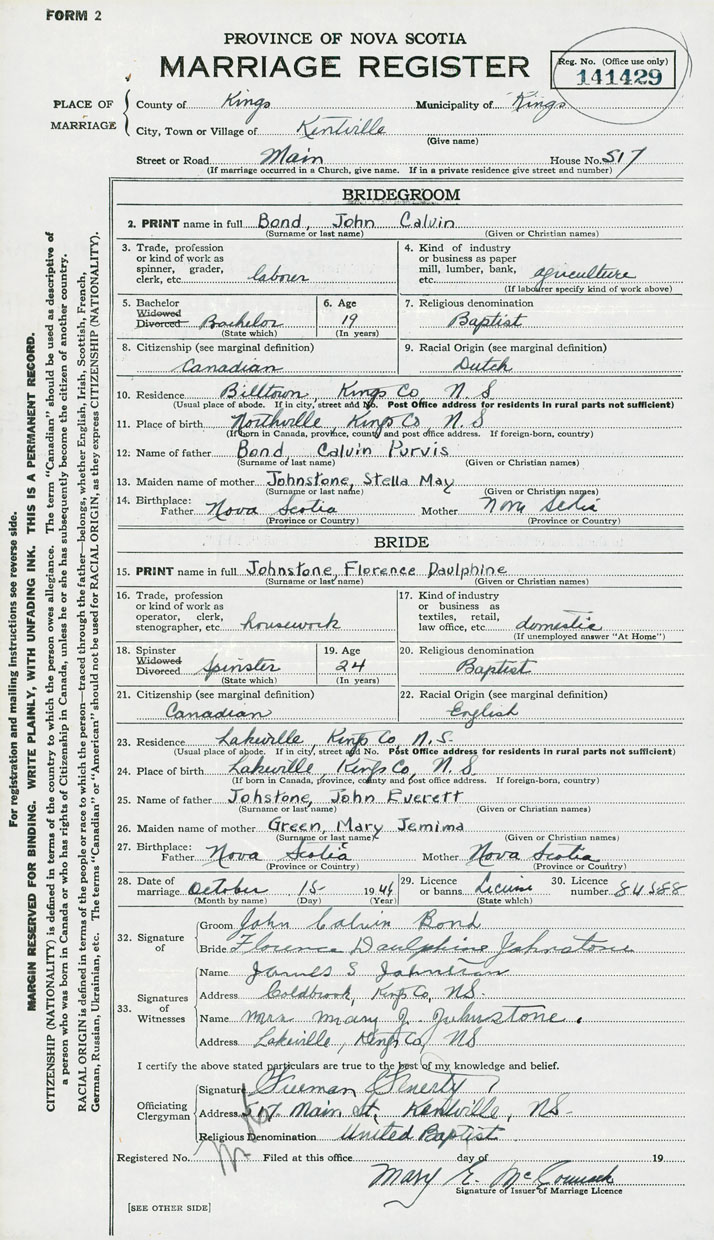 FORM 2
PROVINCE OF NOVA SCOTIA
MARRIAGE REGISTER
Reg. No. (Office use only)
141429
PLACE OF MARRIAGE
County of Kings Municipality of Kings
City, Town or Village of Kentville
(Give name)
Street or Road Main House No. 517
(If marriage occurred in a Church, give name. If in a private residence give street and number)
BRIDEGROOM
2. PRINT name in full Bond, John Calvin
(Surname or last name) (Given or Christian names)
3. Trade, profession or kind of work as spinner, grader, clerk, etc. labourer
4. Kind of industry or business as paper mill, lumber, bank, etc. agriculture
(If labourer specify kind of work above)
5. Bachelor Widowed Divorced Bachelor
(State which)
6. Age 19
(In years)
7. Religious denomination
Baptist
8. Citizenship (see marginal definition)
Canadian
9. Racial Origin (see marginal definition)
Dutch
10. Residence Billtown, Kings Co, N. S
(Usual place of abode. If in city, street and No. Post Office address for residents in rural parts not sufficient)
11. Place of birth Northville, Kings Co, N. S
(If born in Canada, province, county and post office address. If foreign-born, country)
12. Name of father Bond, Calvin Purvis
(Surname or last name) (Given or Christian names)
13. Maiden name of mother Johnstone, Stella May
(Surname or last name) (Given or Christian names)
14. Birthplace: Father Nova Scotia Mother Nova Scotia
(Province or Country) (Province or Country)
BRIDE
15. PRINT name in full Johnstone, Florence Daulphine
(Surname or last name) (Given or Christian names)
16. Trade, profession or kind of work as operator, clerk, stenographer, etc. housework
17. Kind of industry or business as textiles, retail, law office, etc. domestic
(If unemployed answer "At Home")
18. Spinster Widowed Divorced Spinster
(State which)
19. Age 24
(In years)
20. Religious denomination
Baptist
21. Citizenship (see marginal definition)
Canadian
22. Racial Origin (see marginal definition)
English
23. Residence Lakeville, Kings Co, N. S.
(Usual place of abode. If in city, street and No. Post Office address for residents in rural parts not sufficient)
24. Place of birth Lakeville, Kings Co, N. S.
(If born in Canada, province, county and post office address. If foreign-born, country)
25. Name of father Johstone, John Everett
(Surname or last name) (Given or Christian names)
26. Maiden name of mother Green, Mary Jemima
(Surname or last name) (Given or Christian names)
27. Birthplace: Father Nova Scotia Mother Nova Scotia
(Province or Country) (Province or Country)
28. Date of marriage October 15 1944
(Month by name) (Day) (Year)
29. Licence or banns License
(State which)
30. Licence number 84588
32. Signature of
Groom John Calvin Bond
Bride Florence Daulphine Johnstone
33. Signatures of Witnesses
Name James S Johnston
Address Coldbrook, Kings Co, NS.
Name Mrs. Mary J. Johnstone.
Address Lakeville, Kings Co, NS
I certify the above stated particulars are true to the best of my knowledge and belief.
Officiating Clergyman
Signature Freeman
Address 517 Main St, Kentville, NS.
Religious Denomination United Baptist
Registered No. Filed at this office day of 19
Mary E. McCormack
Signature of Issuer of Marriage Licence
[SEE OTHER SIDE]
For registration and mailing instructions see reverse side.
MARGIN RESERVED FOR BINDING. WRITE PLAINLY, WITH UNFADING INK. THIS IS A PERMANENT RECORD.
CITIZENSHIP (NATIONALITY) is defined in terms of the country to which the person owes allegiance. The term "Canadian" should be used as descriptive of
a person who was born in Canada or who has rights of Citizenship in Canada, unless he or she has subsequently become the citizen of another country.
RACIAL ORIGIN is defined in terms of the people or race to which the person—traced through the father—belongs, whether English, Irish, Scottish, French,
German, Russian, Ukrainian, etc. The terms "Canadian" or "American" should not be used for RACIAL ORIGIN, as they express CITIZENSHIP (NATIONALITY).